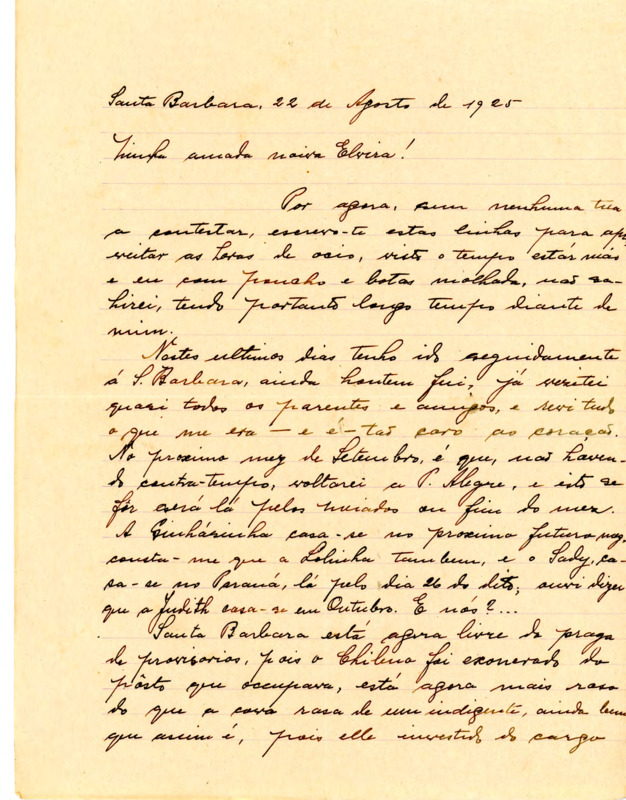 Santa Barbara, 22 de Agosto de 1925
Minha amada noiva Elvira!
Por agora, sem nenhuma tua
a contestar, escrevo-te estas linhas para apr
veitar as horas de ocio, visto o tempo estár máo
e eu com poncho e botas molhada, não sa-
hirei, tendo portanto longo tempo diante de
mim.
Nestes ultimos dias tenho ido seguidamente
á S. Barbara, ainda hontem fui, já vezitei
quasi todos os parentes e amigos, e revi tudo
o que me era — e é — tão caro ao coração.
No proximo mez de Setembro, é que, não haven-
do contra-tempo, voltarei a P. Alegre, e isto se
fôr será lá pelos meiados ou fim do mez.
A Sinházinha casa-se no proximo futuro mez,
consta-me que a Lolinha tambem, e o Sady, ca-
sa-se no Paraná, lá pelo dia 26 do dito; ouvi dizer
que a Judith casa-se em Outubro. E nós?...
Santa Barbara está agora livre da praga
de provisorios, pois o Chileno foi exonerado do
pôsto que occupava, está agora mais raso
do que a cova rasa de um indigente, ainda bem
que assim é, pois elle investido do cargo